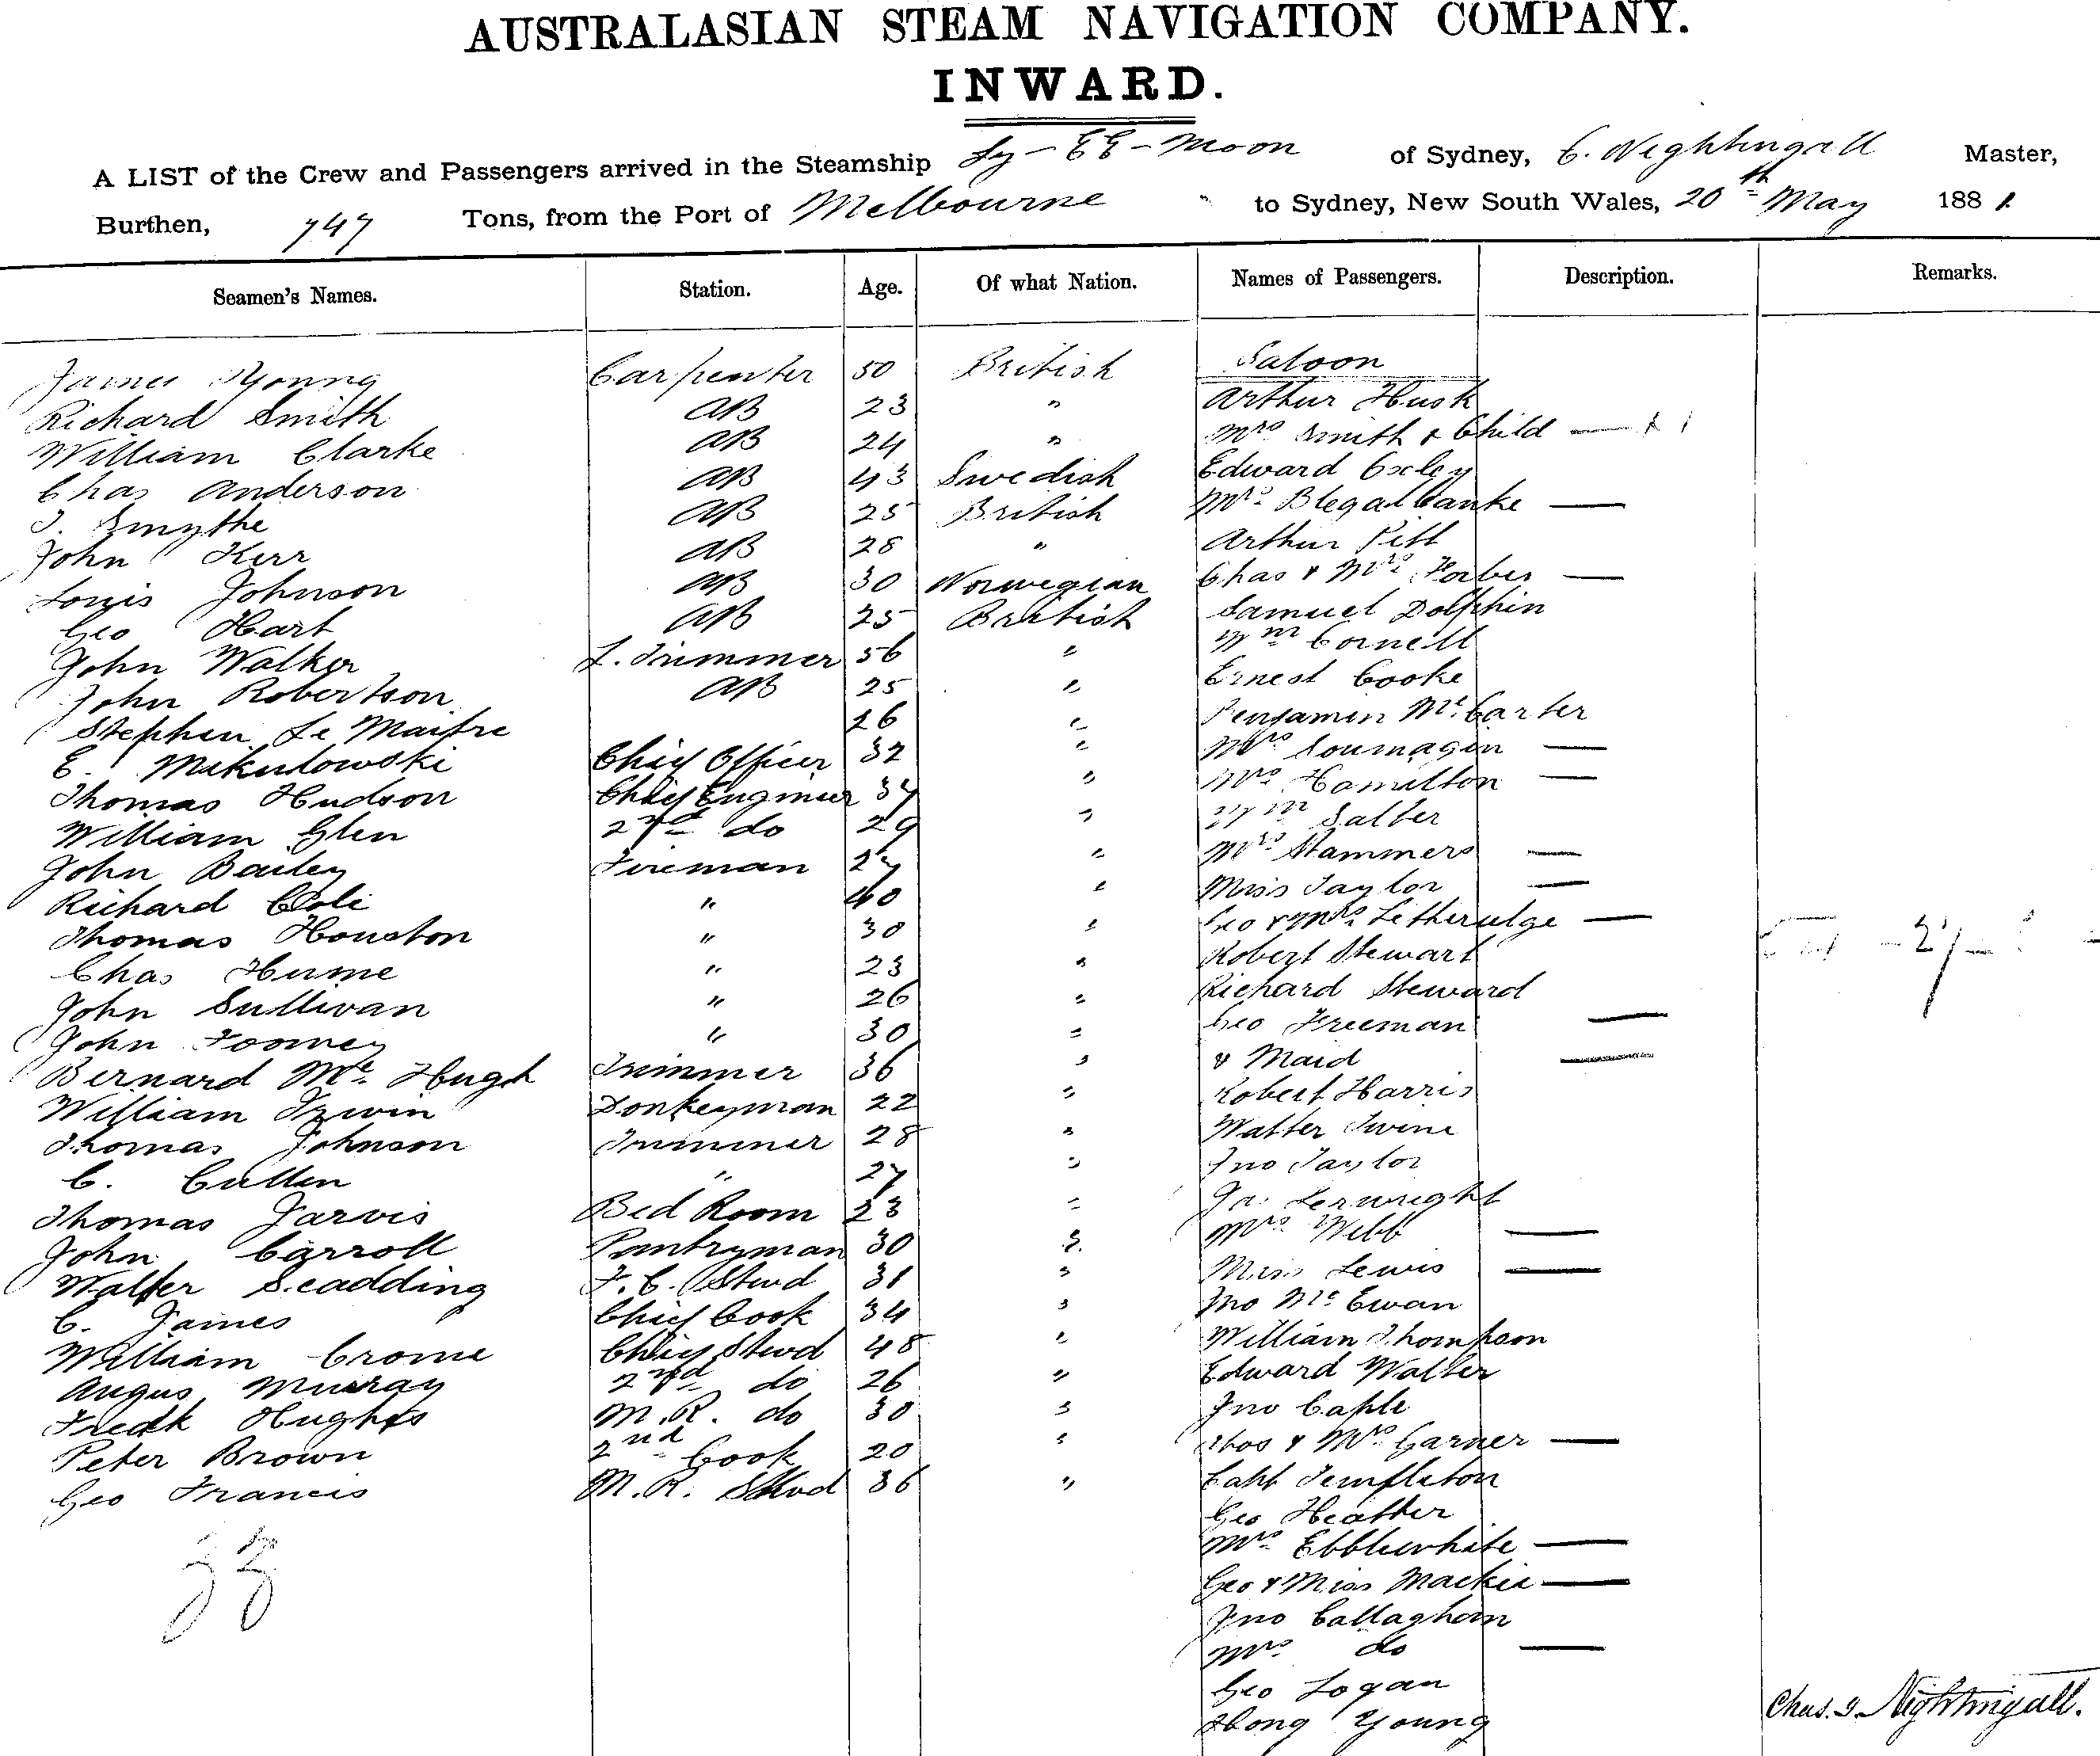 AUSTRALASIAN STEAM NAVIGATION COMPANY.
INWARD.
A LIST of the Crew and Passengers arrived in the Steamship Ly-EE-Moon of Sydney, C. Nightingall Master,
Burthen, 747 Tons, from the Port of Melbourne to Sydney, New South Wales, 20th May 1881
Seamen's Names. Station. Age. Of what Nation. Names of Passengers. Description. Remarks.
Saloon
James Young Carpenter 50 British Arthur Husk
Richard Smith AB 23 " Mrs Smith & Child —
William Clarke AB 24 " Edward Oxley
Chas Anderson AB 43 Swedish Mrs —
J. Smythe AB 25 British Arthur Pitt
John Kerr AB 28 " Chas & Mrs Forbes —
Louis Johnson AB 30 Norwegian Samuel Dolphin
Geo Hart AB 25 British Wm Cornell
John Walker L. Trimmer 56 " Ernest Cooke
John Robertson AB 25 " Benjamin Mc Carter
Stephen Le Maitre 26 " Mrs —
E. Mikulowski Chief Officer 32 " Mrs Hamilton —
Thomas Hudson Chief Engineer 34 " Wm Salter
William Glen 2nd do 29 " Mrs Stammers —
John Bailey Fireman 27 " Miss Taylor —
Richard Cole " 40 " Geo & Mrs Letheridge —
Thomas Houston " 30 " Robert Stewart
Chas Hume " 23 " Richard Steward
John Sullivan " 26 " Geo Freeman —
John Toomey " 30 " & Maid —
Bernard Mc Hugh Trimmer 36 " Robert Harris
William Irwin Donkeyman 22 " Walter Twine
Thomas Johnson Trimmer 28 " Jno Taylor
C. Cullen " 27 " Ja.
Thomas Jarvis Bed Room 23 " Mrs Webb —
John Carroll Pantryman 30 " Miss Lewis —
Walter Scadding F.C. Stwd 31 " Jno Mc Ewan
C. James Chief Cook 34 " William Thompson
William Crome Chief Stwd 48 " Edward Walter
Angus Murray 2nd do 26 " Jno Caple
Fredk Hughes M.R. do 30 " Thos & Mrs Garner —
Peter Brown 2nd Cook 20 " Capt Templeton
Geo Francis M.R. Stwd 36 " Geo Heatter
33
Mrs Ebblewhite —
Geo & Miss Mackie —
Jno Callaghan
Mrs do —
Geo Logan
Hong Young
Chas. J. Nightingall.